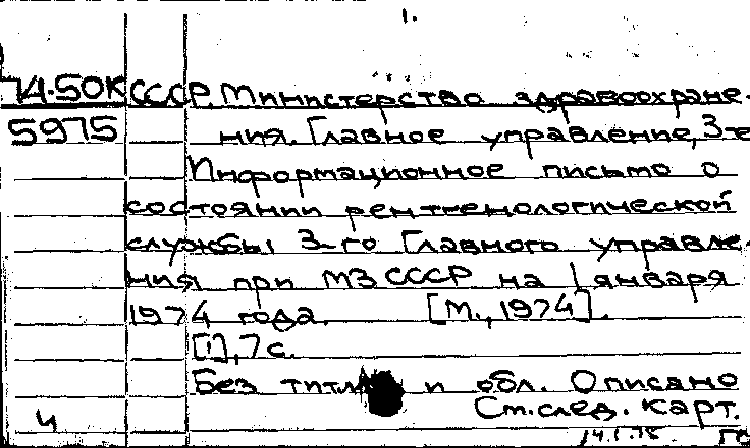 1.
74-50К СССР. Министерство здравоохране-
5975 ния. Главное управление, 3-е
Информационное письмо о
состоянии рентгенологической
службы 3-го Главного управле-
ния при МЗ СССР на 1 января
1974 года. [М., 1974].
[1], 7 с.
Без титла и обл. Описано
См. след. карт.
4